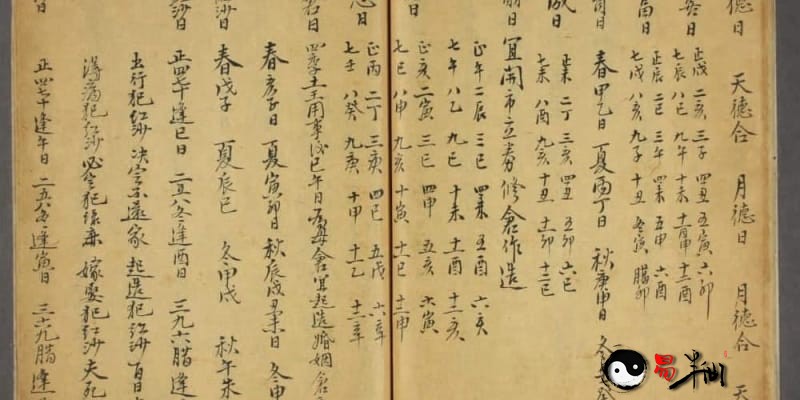 德日 天德合 月德日 月德合 天
正戌 二亥 三子 四丑 五寅 六卯
七辰 八巳 九午 十未 十一申 十二酉
正辰 二巳 三午 四未 五申 六酉
七戌 八亥 九子 十丑 冬寅 臘卯
日 春甲乙日 夏丙丁日 秋庚申日 冬
成日 正未 二丁 三亥 四丑 五卯 六巳
七未 八酉 九亥 十丑 十一卯 十二巳
日 宜開市立券修倉作造
正午 二辰 三巳 四未 五酉 六亥
七午 八乙 九巳 十未 十一酉 十二亥
日 正亥 二寅 三巳 四申 五亥 六寅
七巳 八申 九亥 十寅 十一巳 十二申
忌日 正丙 二丁 三亥 四巳 五戊 六辛
七壬 八癸 九庚 十甲 十一乙 十二辛
日 四季土王用事後巳午日為母倉宜起造婚姻倉
春亥子日 夏寅卯日 秋辰戌丑未日 冬申
日 春戊子 夏辰巳 冬甲戌 秋午未
沙日 正四七十逢巳日 二五八冬逢酉日 三九六臘逢
出行犯紅沙 決定不還家 起造犯紅沙 百日
得病犯紅沙 必定犯 嫁娶犯紅沙 夫死
日 正四七十逢午日 二五八冬逢寅日 三六九臘逢
易半仙